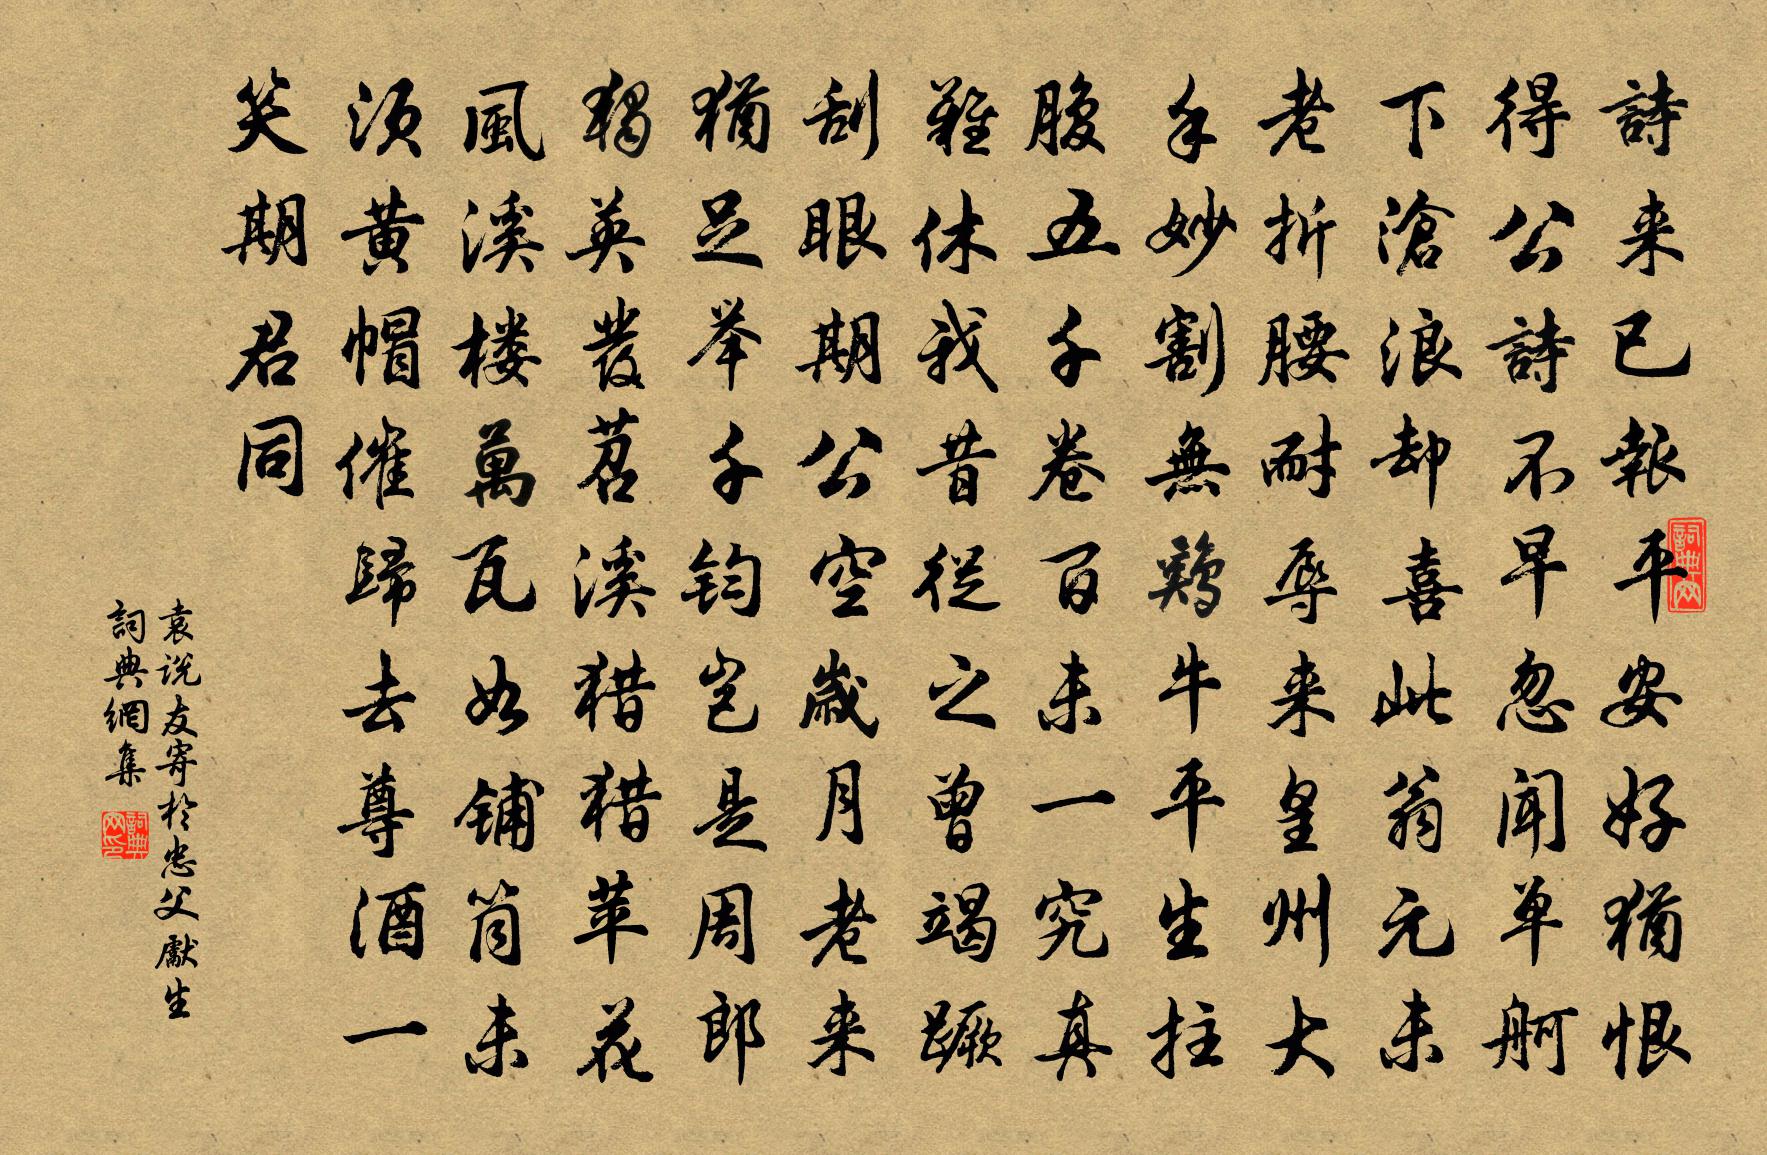 詩来已報平安好猶恨
得公詩不早忽聞单舸
下滄浪却喜此翁元未
老折腰耐辱来皇州大
手妙割無鶏牛平生拄
腹五千卷百未一究真
難休我昔從之曾竭蹶
刮眼期公空歲月老来
猶足举千鈞岂是周郎
獨英發苕溪猎猎苹花
風溪楼萬瓦如鋪筒未
須黄帽催歸去尊酒一
笑期君同
袁说友寄於忠父獻生
詞典網集
詞典网
詞典网印